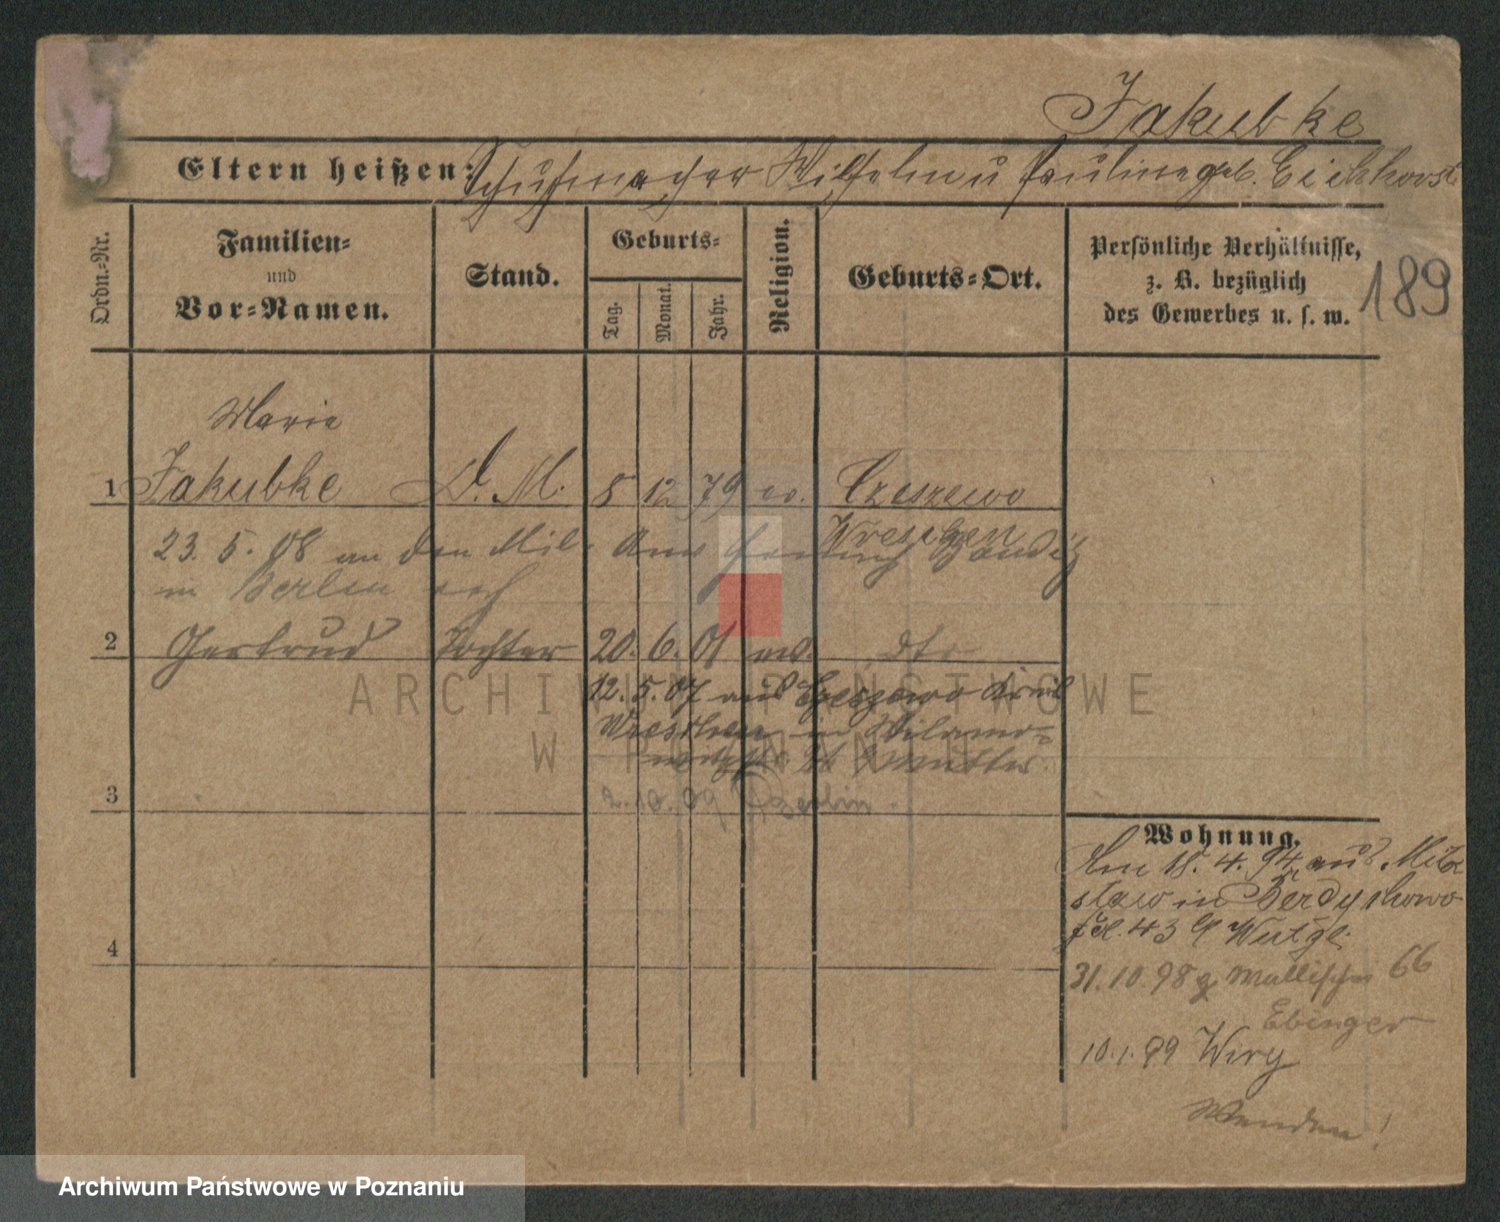 Jakubke
Eltern heißen: Schuhmacher Wilhelm u Pauline geb. Eichhorst
Ordn.-Nr.
Familien-
und
Vor-Namen.
Stand.
Geburts-
Tag.
Monat.
Jahr.
Religion.
Geburts-Ort.
Persönliche Verhältnisse,
z. B. bezüglich
des Gewerbes u. s. w.
189
Marie
1 Jakubke D. M. 5 12 79 ev. Czeszewo
Wreschen
23. 5. 08 an den
in Berlin
2 Gertrud Tochter 20. 6. 01 dto
12. 5. 07 aus Czeszewo Kreis
Wreschen in Wilamo-
3
2. 10. 09 Berlin
4
Wohnung.
Am 18. 4. 94 aus Milo
slaw in Berdychowo
43
31. 10. 98 Wallischei 66
Ebinger
10. 1. 99 Wiry
Wenden!
ARCHIWUM PAŃSTWOWE
W POZNANIU
Archiwum Państwowe w Poznaniu